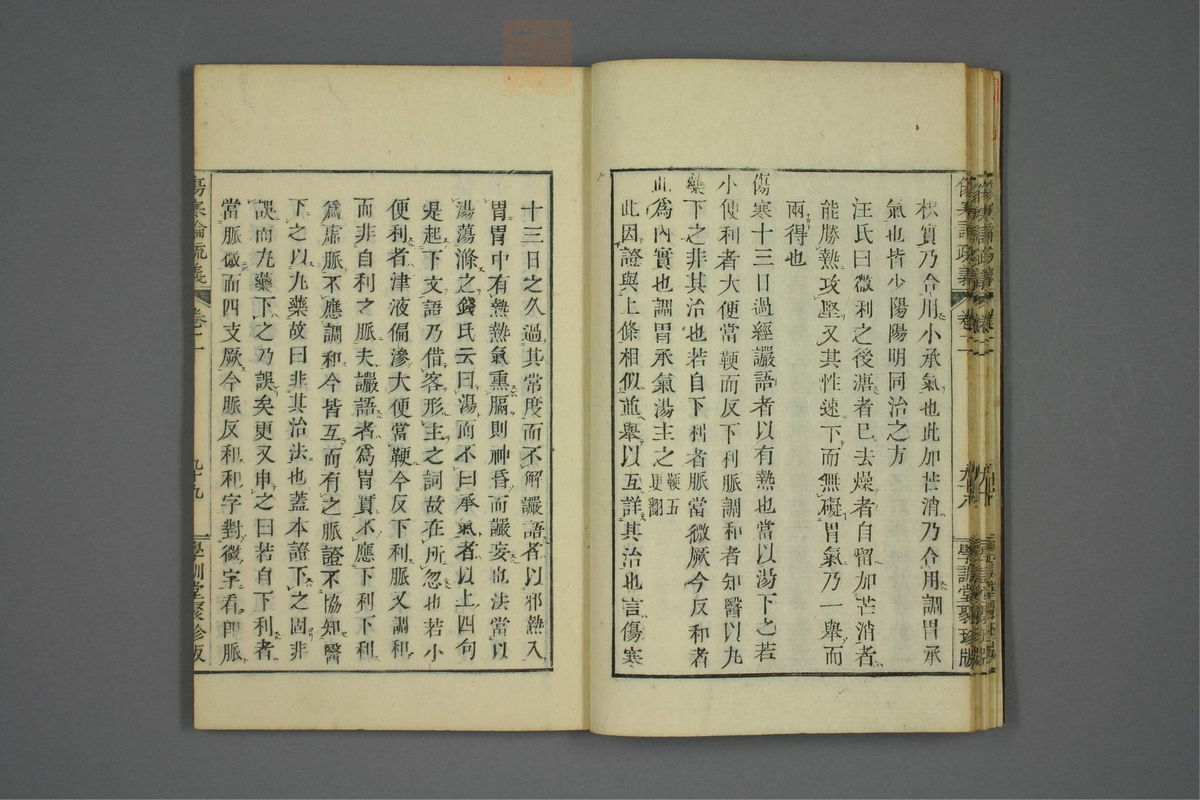 枳實乃合用小承氣也此加芒消乃合用調胃承
氣也皆少陽陽明同治之方
汪氏曰微利之後溏者已去燥者自留加芒消者
能勝熱攻堅又其性速下而無礙胃氣乃一舉而
兩得也
傷寒十三日過經讝語者以有熱也當以湯下之若
小便利者大便當鞕而反下利脈調和者知醫以丸
藥下之非其治也若自下利者脈當微厥今反和者
此為內實也調胃承氣湯主之鞕五更翻
此因證與上條相似並舉以互詳其治也言傷寒
十三日之久過其常度而不解讝語者以邪熱入
胃胃中有熱熱氣熏膈則神昏而讝妄也法當以
湯蕩滌之錢氏云曰湯而不曰承氣者以上四句
是起下文語乃借客形主之詞故在所忽也若小
便利者津液偏滲大便當鞕今反下利脈又調和
而非自利之脈夫讝語者為胃實不應下利下利
為虛脈不應調和今皆互而有之脈證不協知醫
下之以丸藥故曰非其治法也蓋本證下之固非
誤而丸藥下之乃誤矣更又申之曰若自下利者
當脈微而四支厥今脈反和和字對微字看即脈
傷寒論疏義
卷二
九十九
學訓堂聚珍版